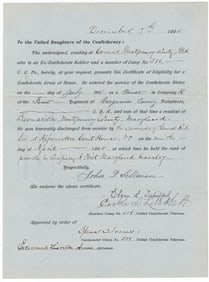 December 7th 1905
To the United Daughters of the Confederacy:
The undersigned, residing at Barnesville Montgomery County, Md
who is an Ex-Confederate Soldier and a member of Camp No. 518,
U. C. Vs., hereby, on request, presents this Certificate of Eligibility for a
Confederate Cross of Honor. He entered the service of the Confederate States
on the day of July 186 as a Private in Company
K of the First Regiment of Virginia Cavalry Volunteers,
C. S. A. and was at that time a resident of
Barnesville Montgomery County, Maryland.
He was honorably discharged from service by the surrender of General R. E.
Lee at Appomattox Court House, Va. on the ninth day of
April 1865 at which time he held the rank of
private in Company First Maryland Cavalry
Respectfully,
John P. Sellman
We endorse the above certificate.
Members Camp No. 518 United Confederate Veterans.
Approved by order of
Commander Camp No. 518, United Confederate Veterans.
Adjutant